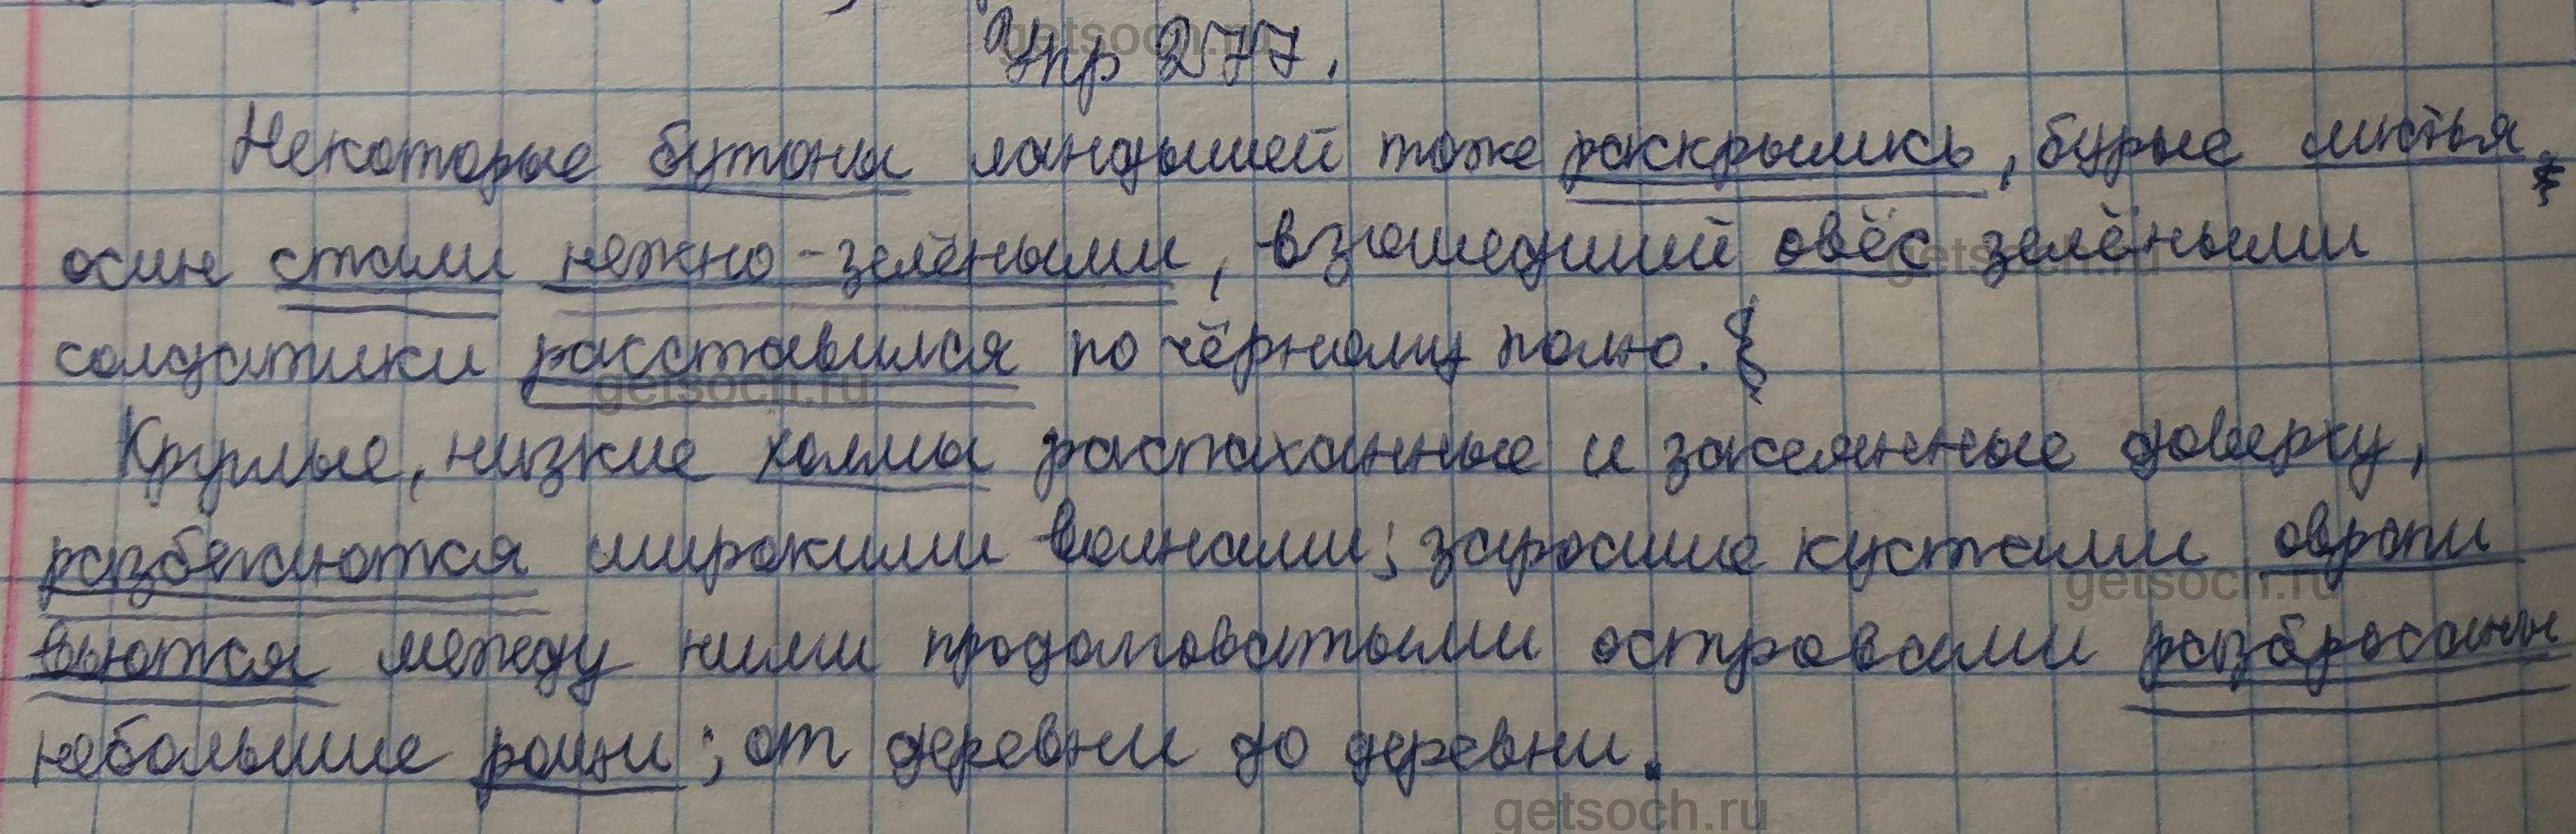 Упр 277.
Некоторые бутоны ландышей тоже раскрылись, бурые листья
осин стали нежно-зелёными, взошедший овёс зелёными
солдатики расставился по чёрному полю.
Круглые, низкие холмы распаханные и засеянные доверху,
разбегаются широкими волнами; заросшие кустами овраги
вьются между ними продолговатыми островами разбросаны
небольшие рощи; от деревни до деревни.
getsoch.ru
getsoch.ru
getsoch.ru
getsoch.ru
getsoch.ru